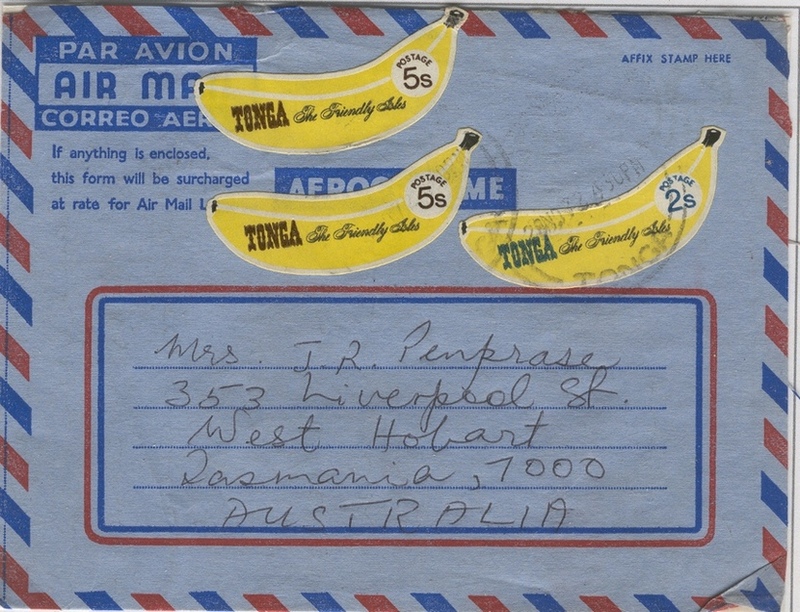 PAR AVION
AIR MA
CORREO AER
If anything is enclosed,
this form will be surcharged
at rate for Air Mail L
AFFIX STAMP HERE
POSTAGE
5s
TONGA The Friendly Isles
AEROG ME
POSTAGE
5s
TONGA The Friendly Isles
POSTAGE
2s
TONGA The Friendly Isles
TONGA
Mrs. J.R. Penprase
353 Liverpool St.
West Hobart
Tasmania, 7000
AUSTRALIA